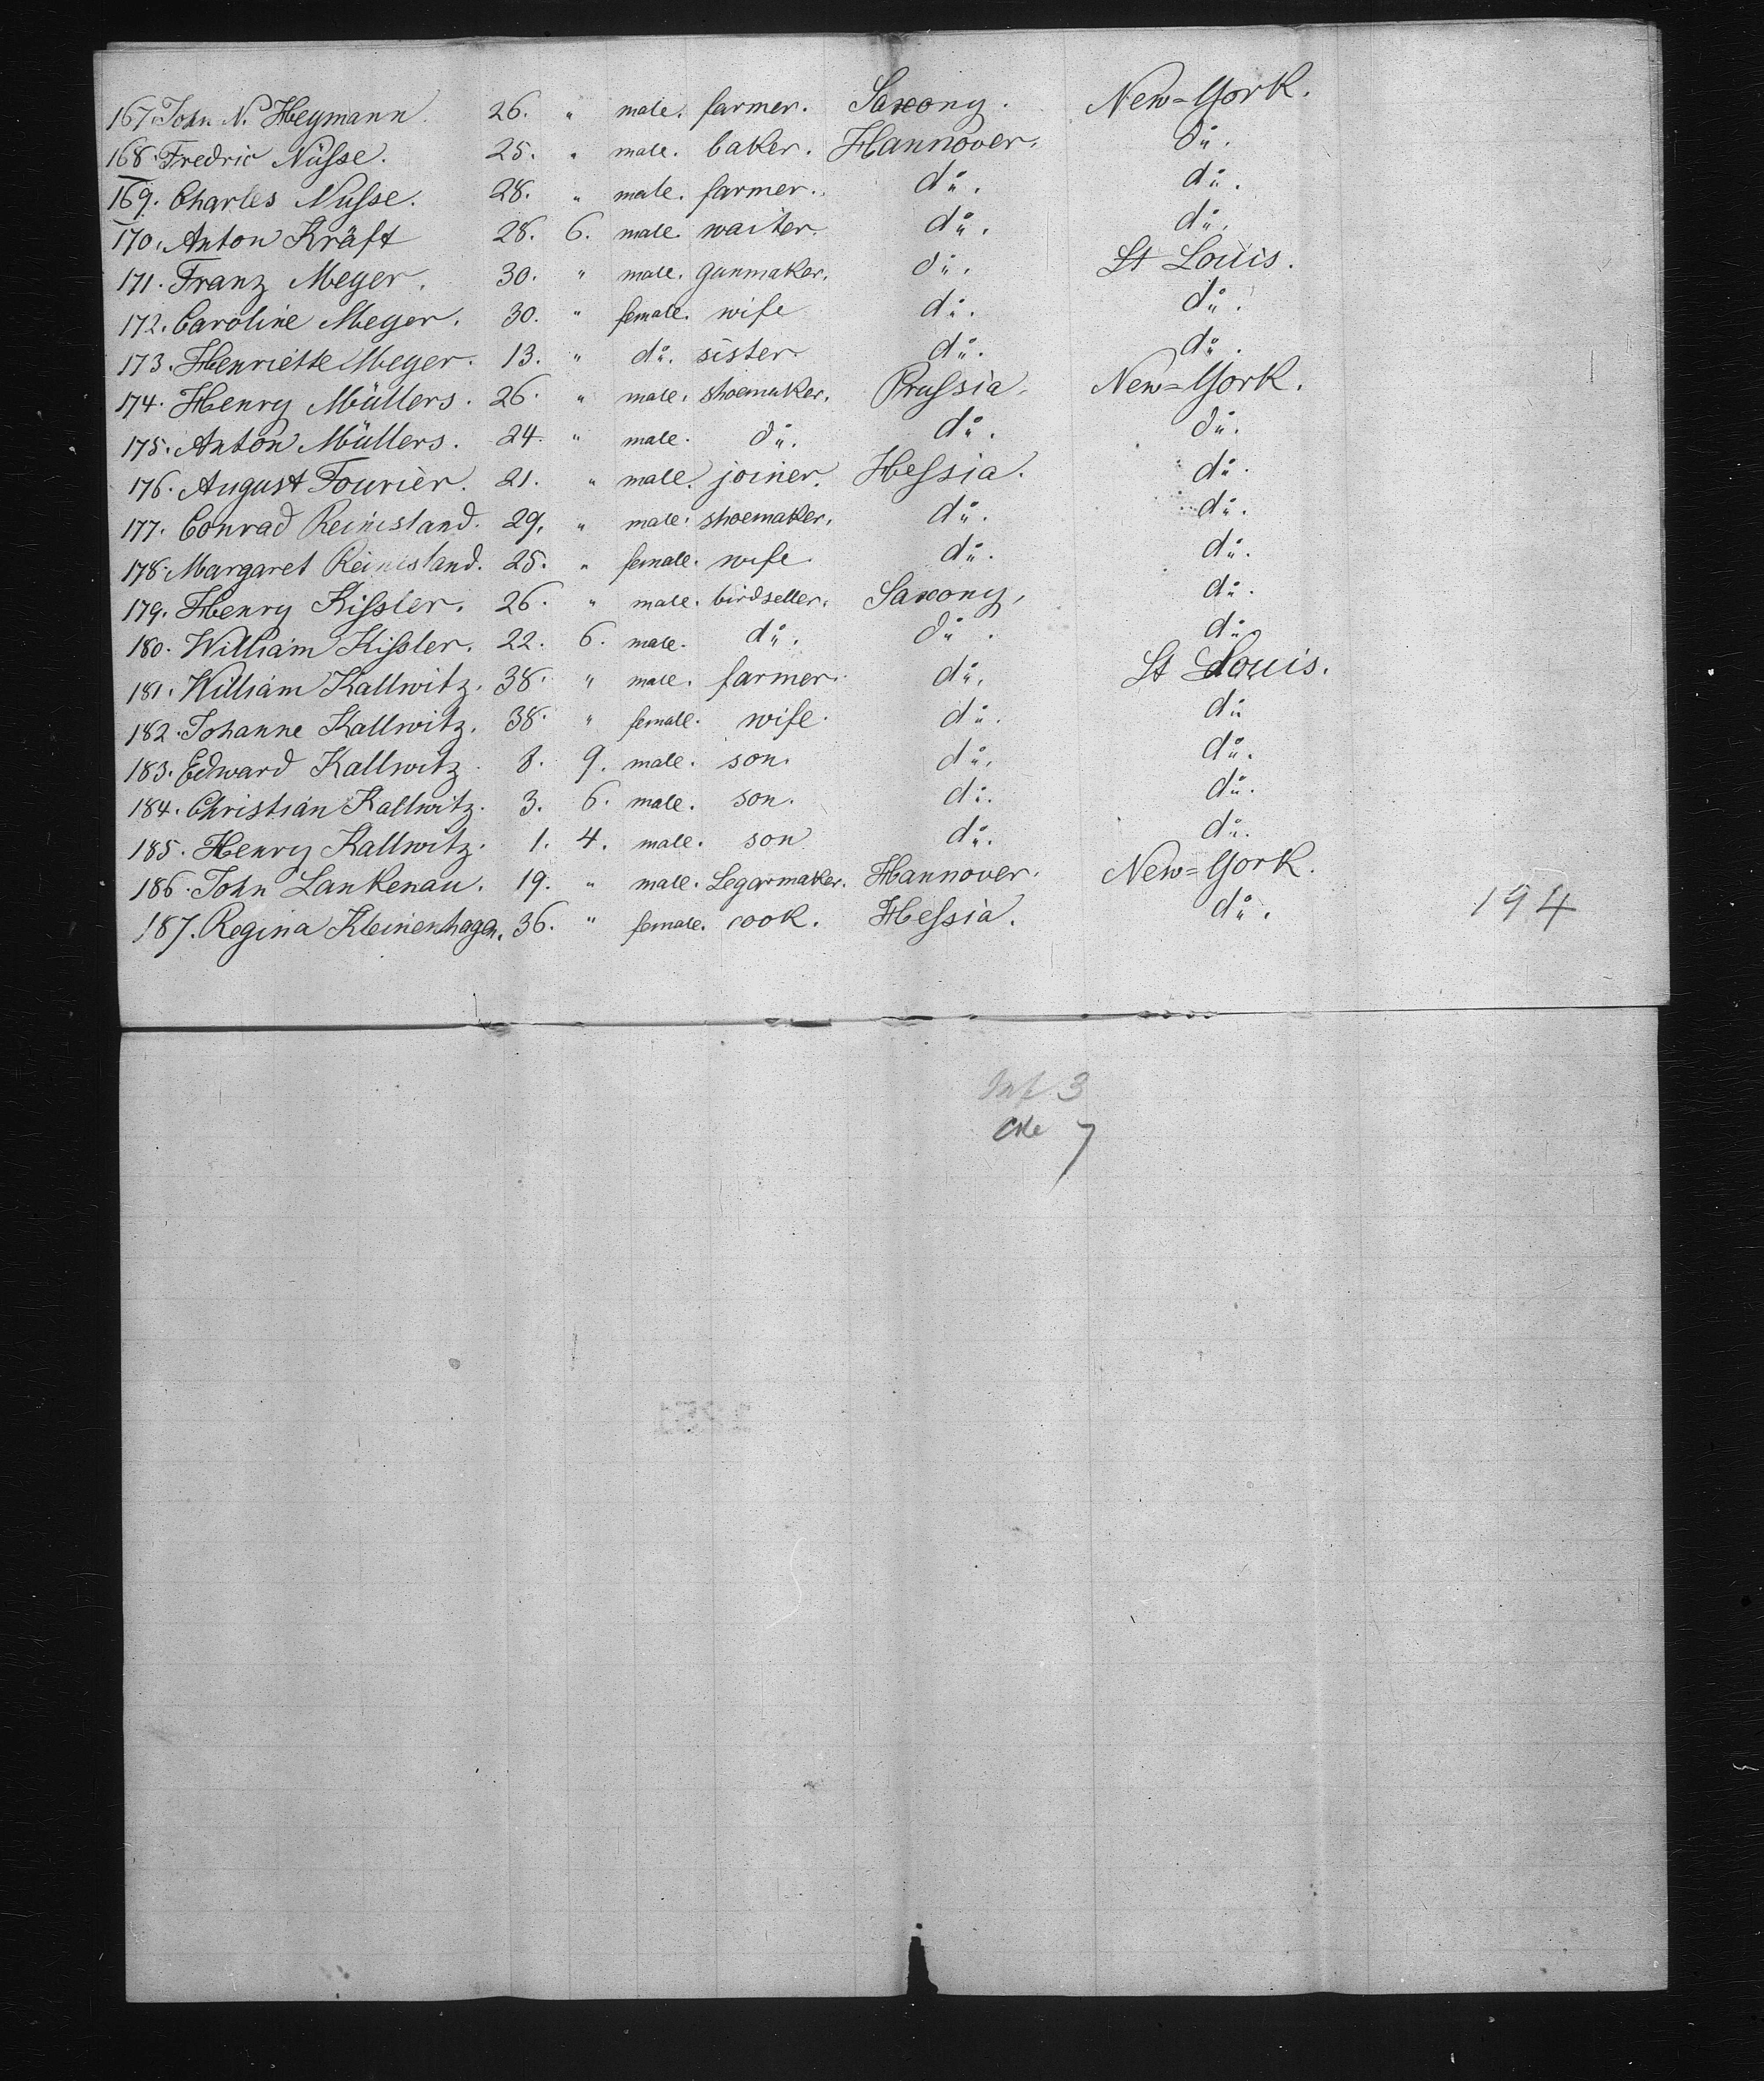 167. John N. Heymann. 26. " male. farmer. Saxony. New=York.
168. Fredric Nüsse. 25. " male. baker. Hannover. do.
169. Charles Nusse. 28. " male. farmer. do. do.
170. Anton Kräft 28. 6. male. waiter. do. do.
171. Franz Meyer. 30. " male. gunmaker. do. St Louis.
172. Caroline Meyer. 30. " female. wife do. do.
173. Henriette Meyer. 13. " do. sister. do. do.
174. Henry Müllers. 26. " male. shoemaker. Prussia. New=York.
175. Anton Müllers. 24. " male. do. do. do.
176. August Fourier. 21. " male. joiner. Hessia. do.
177. Conrad Reinisland. 29. " male. shoemaker. do. do.
178. Margaret Reinisland. 25. " female. wife do. do.
179. Henry Kissler. 26. " male. birdseller. Saxony. do.
180. William Kissler. 22. 6. male. do. do. do.
181. William Kallwitz. 38. " male. farmer. do. St Louis.
182. Johanne Kallwitz. 38. " female. wife. do. do
183. Edward Kallwitz. 8. 9. male. son. do. do.
184. Christian Kallwitz. 3. 6. male. son. do. do.
185. Henry Kallwitz. 1. 4. male. son do. do.
186. John Lankenau. 19. " male. Segarmaker. Hannover. New=York.
187. Regina Kleinenhagen. 36. " female. cook. Hessia. do. 194
Inf 3
7